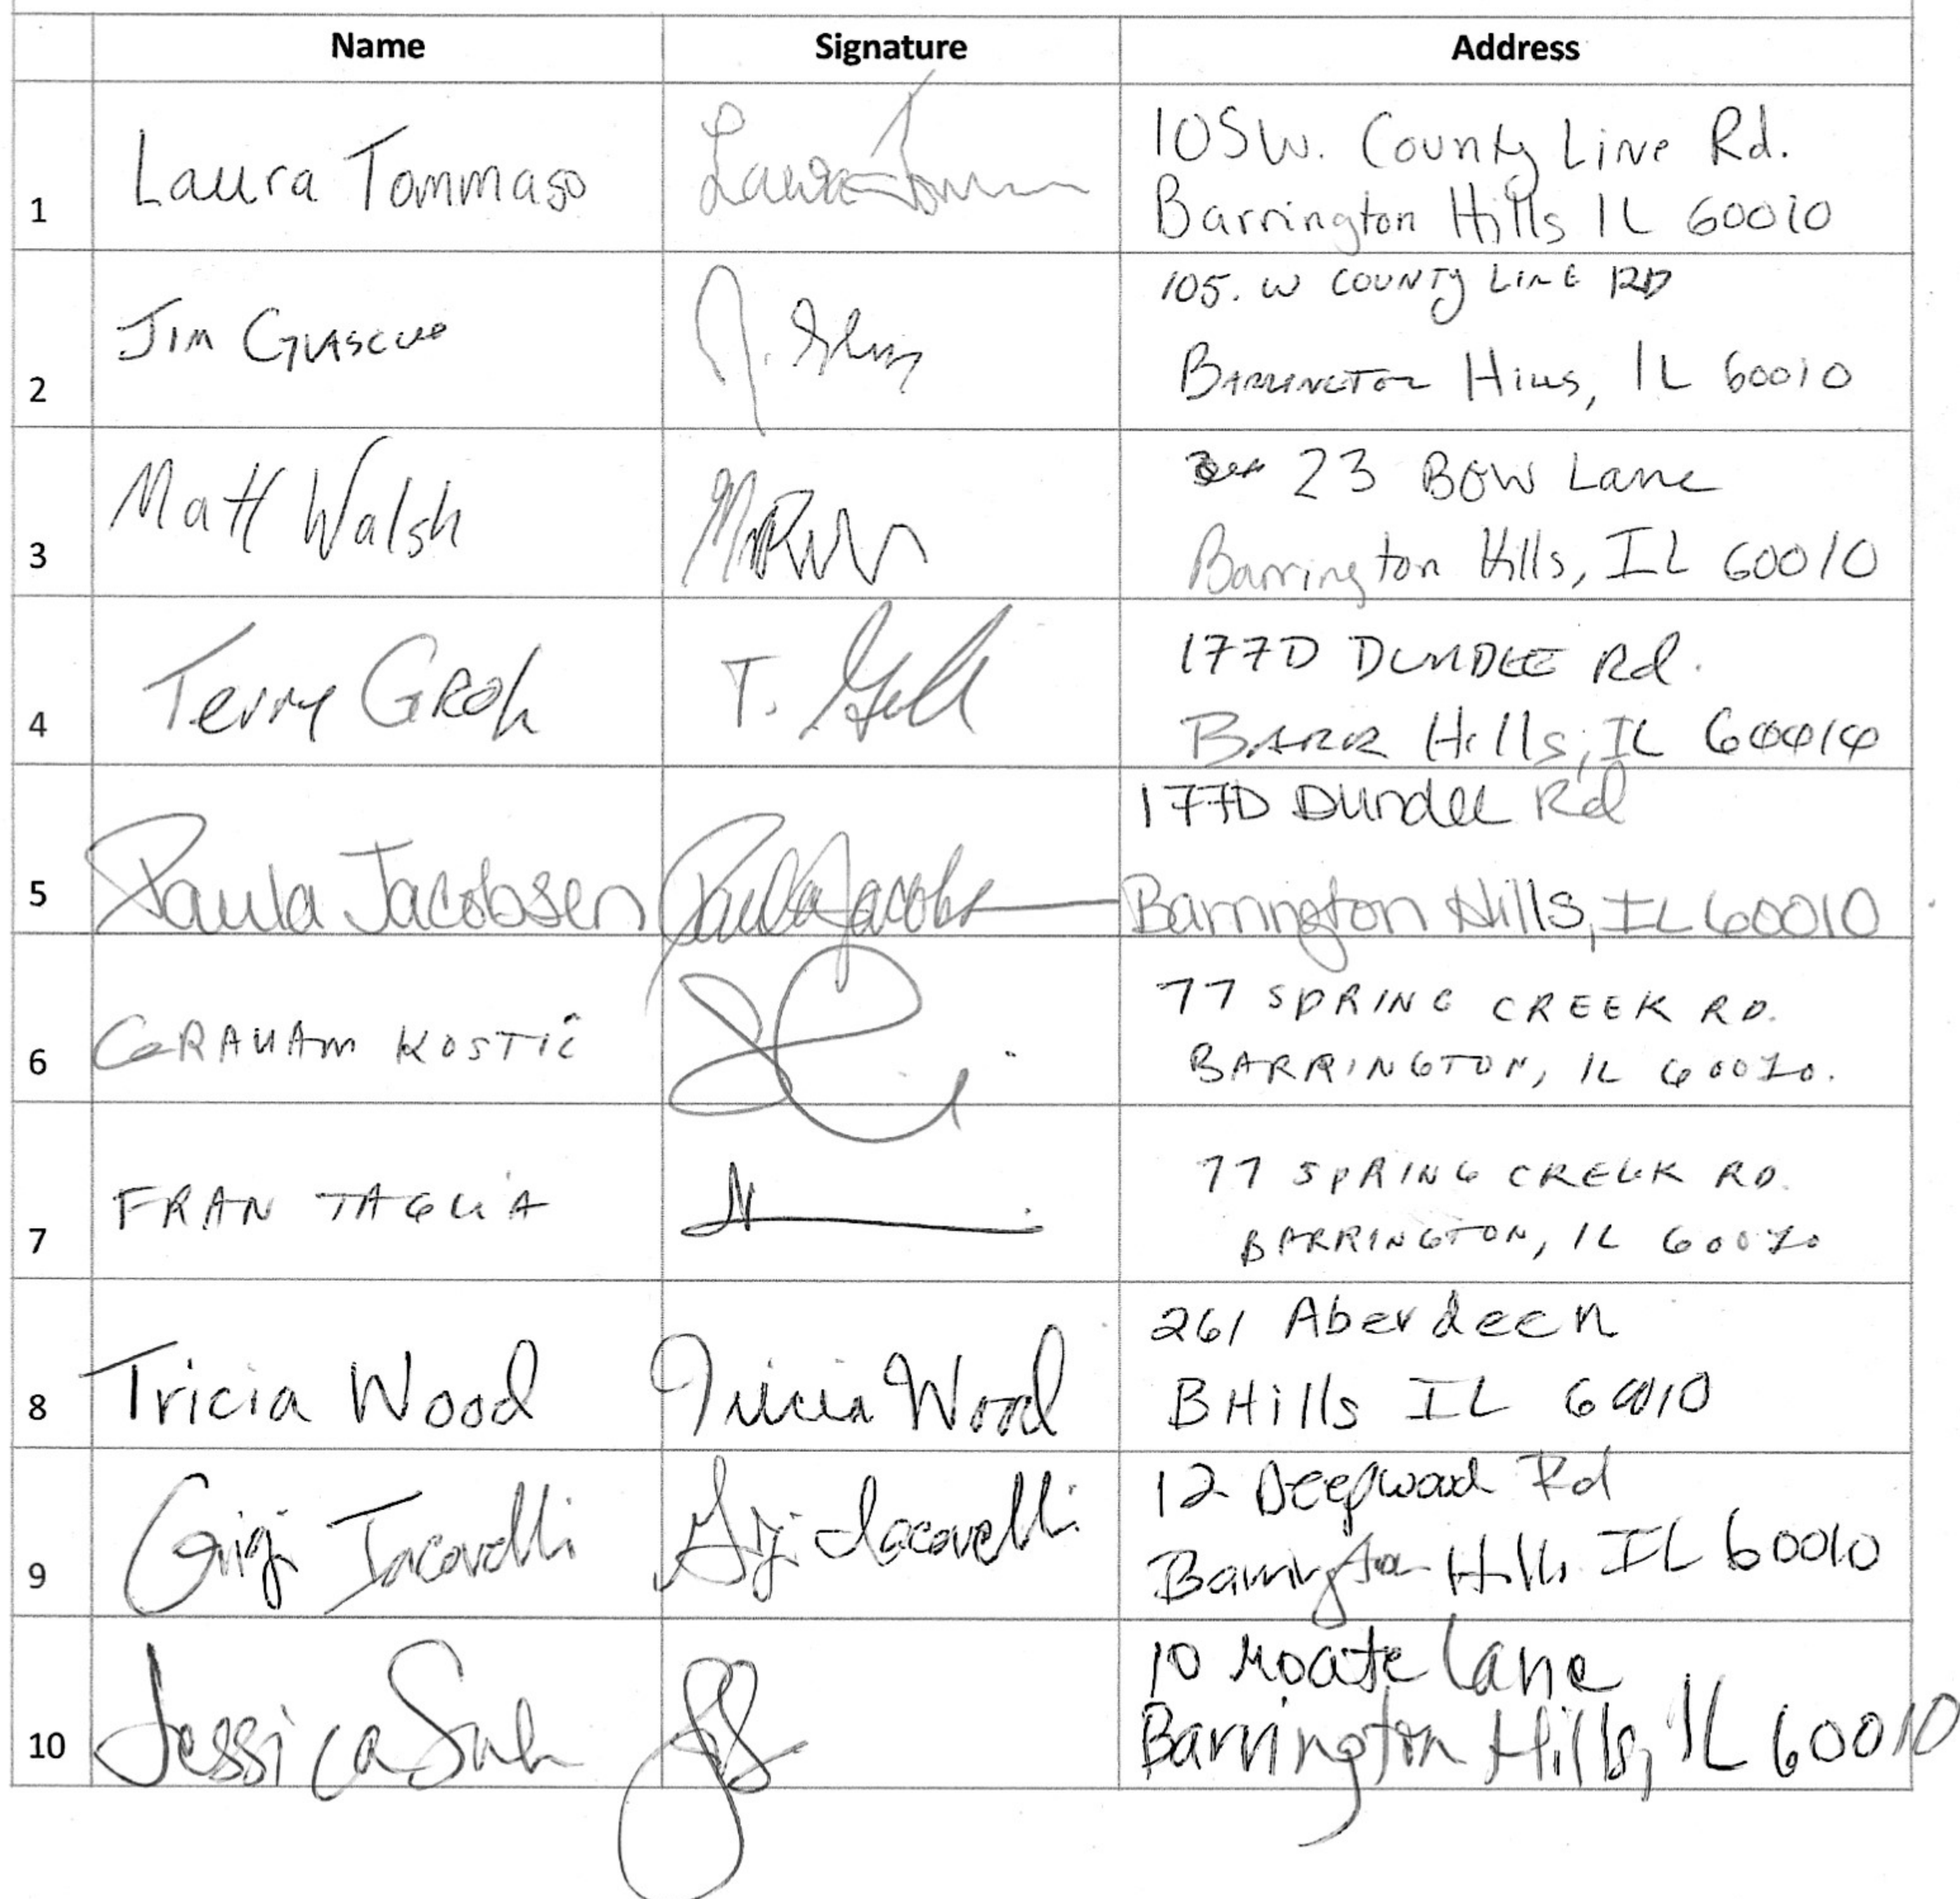 Name Signature Address
1 Laura Tommaso Laura Tomm 105 W. County Line Rd.
Barrington Hills IL 60010
2 Jim J. 105. W COUNTY LINE RD
BARRINGTON HILLS, IL 60010
3 Matt Walsh 23 BOW Lane
Barrington Hills, IL 60010
4 Terry GROH T. 177D DUNDEE Rd.
BARR Hills, IL 60010
5 Paula Jacobsen Paula Jacobs 177D Dundee Rd
Barrington Hills, IL 60010
6 GRAHAM KOSTIC 77 SPRING CREEK RD.
BARRINGTON, IL 60010.
7 FRAN TAGLIA 77 SPRING CREEK RD.
BARRINGTON, IL 60010
8 Tricia Wood Tricia Wood 261 Aberdeen
BHills IL 60010
9 Gigi Iacovelli Gigi Iacovelli 12 Deepwood Rd
Barrington Hills IL 60010
10 Jessica JS 10 Moate Lane
Barrington Hills, IL 60010